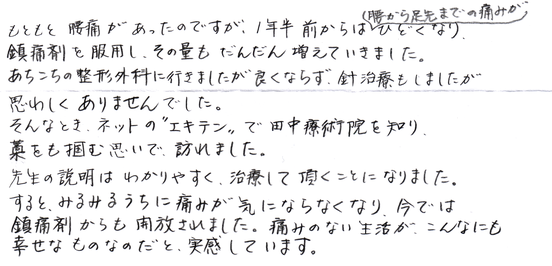 (腰から足先までの痛みが
もともと 腰痛が あったのですが、1年半 前からは ひどくなり、
鎮痛剤を 服用し、その量も だんだん 増えていきました。
あちこちの整形外科に行きましたが 良くならず、針治療もしましたが
思わしく ありませんでした。
そんなとき、ネットの"エキテン"で 田中療術院を 知り、
藁をも掴む 思いで、訪れました。
先生の説明は わかりやすく、治療して 頂くことに なりました。
すると、みるみるうちに 痛みが 気に ならなくなり、今では
鎮痛剤からも 開放されました。痛みのない 生活が、こんなにも
幸せな ものなのだと、実感しています。